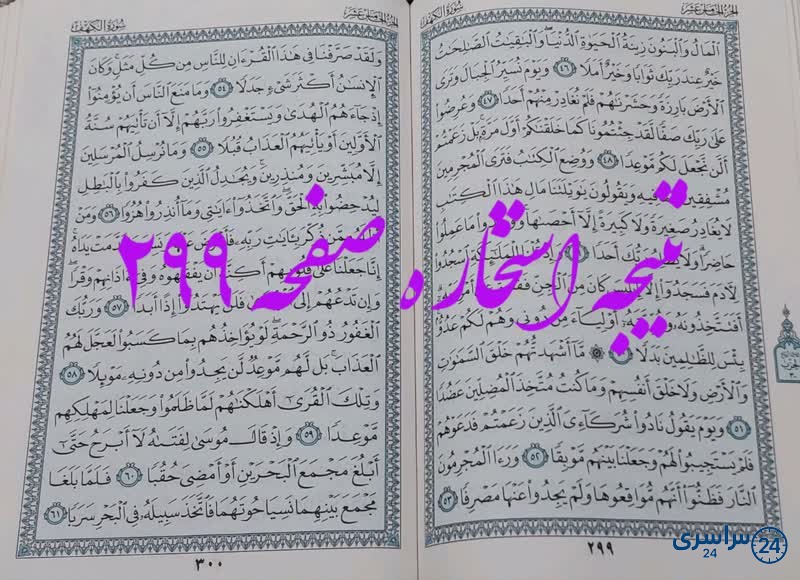 الجزء الخامس عشر
سورة الكهف
ٱلْمَالُ وَٱلْبَنُونَ زِينَةُ ٱلْحَيَوٰةِ ٱلدُّنْيَا وَٱلْبَٰقِيَٰتُ ٱلصَّٰلِحَٰتُ
خَيْرٌ عِندَ رَبِّكَ ثَوَابًا وَخَيْرٌ أَمَلًا ٤٦ وَيَوْمَ نُسَيِّرُ ٱلْجِبَالَ وَتَرَى
ٱلْأَرْضَ بَارِزَةً وَحَشَرْنَٰهُمْ فَلَمْ نُغَادِرْ مِنْهُمْ أَحَدًا ٤٧ وَعُرِضُوا
عَلَىٰ رَبِّكَ صَفًّا لَّقَدْ جِئْتُمُونَا كَمَا خَلَقْنَٰكُمْ أَوَّلَ مَرَّةٍۭ بَلْ زَعَمْتُمْ
أَلَّن نَّجْعَلَ لَكُم مَّوْعِدًا ٤٨ وَوُضِعَ ٱلْكِتَٰبُ فَتَرَى ٱلْمُجْرِمِينَ
مُشْفِقِينَ فِيهِ وَيَقُولُونَ يَٰوَيْلَتَنَا مَالِ هَٰذَا ٱلْكِتَٰبِ
لَا يُغَادِرُ صَغِيرَةً وَلَا كَبِيرَةً إِلَّآ أَحْصَىٰهَا مَا عَمِلُوا
حَاضِرًا وَلَا رَبُّكَ أَحَدًا لِلْمَلَٰٓئِكَةِ ٱسْجُدُوا
لِأٓدَمَ فَسَجَدُوٓا إِلَّآ كَانَ مِنَ ٱلْجِنِّ
أَفَتَتَّخِذُونَهُۥ أَوْلِيَآءَ مِن دُونِي وَهُمْ لَكُمْ عَدُوٌّۢ
بِئْسَ لِلظَّٰلِمِينَ بَدَلًا ۞ مَّآ أَشْهَدتُّهُمْ خَلْقَ ٱلسَّمَٰوَٰتِ
وَٱلْأَرْضِ وَلَا خَلْقَ أَنفُسِهِمْ وَمَا كُنتُ مُتَّخِذَ ٱلْمُضِلِّينَ عَضُدًا
٥١ وَيَوْمَ يَقُولُ نَادُوا شُرَكَآءِيَ ٱلَّذِينَ زَعَمْتُمْ فَدَعَوْهُمْ
فَلَمْ يَسْتَجِيبُوا لَهُمْ وَجَعَلْنَا بَيْنَهُم مَّوْبِقًا ٥٢ وَرَءَا ٱلْمُجْرِمُونَ
ٱلنَّارَ فَظَنُّوٓا أَنَّهُم مُّوَاقِعُوهَا وَلَمْ يَجِدُوا عَنْهَا مَصْرِفًا ٥٣
٢٩٩
الجزء الخامس عشر
سورة الكهف
وَلَقَدْ صَرَّفْنَا فِي هَٰذَا ٱلْقُرْءَانِ لِلنَّاسِ مِن كُلِّ مَثَلٍ وَكَانَ
ٱلْإِنسَٰنُ أَكْثَرَ شَيْءٍ جَدَلًا ٥٤ وَمَا مَنَعَ ٱلنَّاسَ أَن يُؤْمِنُوٓا
إِذْ جَآءَهُمُ ٱلْهُدَىٰ وَيَسْتَغْفِرُوا رَبَّهُمْ إِلَّآ أَن تَأْتِيَهُمْ سُنَّةُ
ٱلْأَوَّلِينَ أَوْ يَأْتِيَهُمُ ٱلْعَذَابُ قُبُلًا ٥٥ وَمَا نُرْسِلُ ٱلْمُرْسَلِينَ
إِلَّا مُبَشِّرِينَ وَمُنذِرِينَ وَيُجَٰدِلُ ٱلَّذِينَ كَفَرُوا بِٱلْبَٰطِلِ
لِيُدْحِضُوا بِهِ ٱلْحَقَّ وَٱتَّخَذُوٓا ءَايَٰتِي وَمَآ أُنذِرُوا هُزُوًا ٥٦ وَمَنْ
ذُكِّرَ بِـَٔايَٰتِ رَبِّهِۦ قَدَّمَتْ يَدَاهُ
إِنَّا جَعَلْنَا عَلَىٰ قُلُوبِهِمْ أَكِنَّةً أَن يَفْقَهُوهُ وَفِيٓ ءَاذَانِهِمْ وَقْرًا
وَإِن تَدْعُهُمْ إِلَى فَلَن يَهْتَدُوٓا إِذًا أَبَدًا ٥٧ وَرَبُّكَ
ٱلْغَفُورُ ذُو ٱلرَّحْمَةِ لَوْ يُؤَاخِذُهُم بِمَا كَسَبُوا لَعَجَّلَ لَهُمُ
ٱلْعَذَابَ بَل لَّهُم مَّوْعِدٌ لَّن يَجِدُوا مِن دُونِهِۦ مَوْئِلًا ٥٨
وَتِلْكَ ٱلْقُرَىٰٓ أَهْلَكْنَٰهُمْ لَمَّا ظَلَمُوا وَجَعَلْنَا لِمَهْلِكِهِم
مَّوْعِدًا ٥٩ وَإِذْ قَالَ مُوسَىٰ لِفَتَىٰهُ لَآ أَبْرَحُ حَتَّىٰٓ
أَبْلُغَ مَجْمَعَ ٱلْبَحْرَيْنِ أَوْ أَمْضِيَ حُقُبًا ٦٠ فَلَمَّا بَلَغَا
مَجْمَعَ بَيْنِهِمَا نَسِيَا حُوتَهُمَا فَٱتَّخَذَ سَبِيلَهُۥ فِي ٱلْبَحْرِ سَرَبًا ٦١
٣٠٠
نتیجه استخاره صفحه ۲۹۹
سراسری
24
24